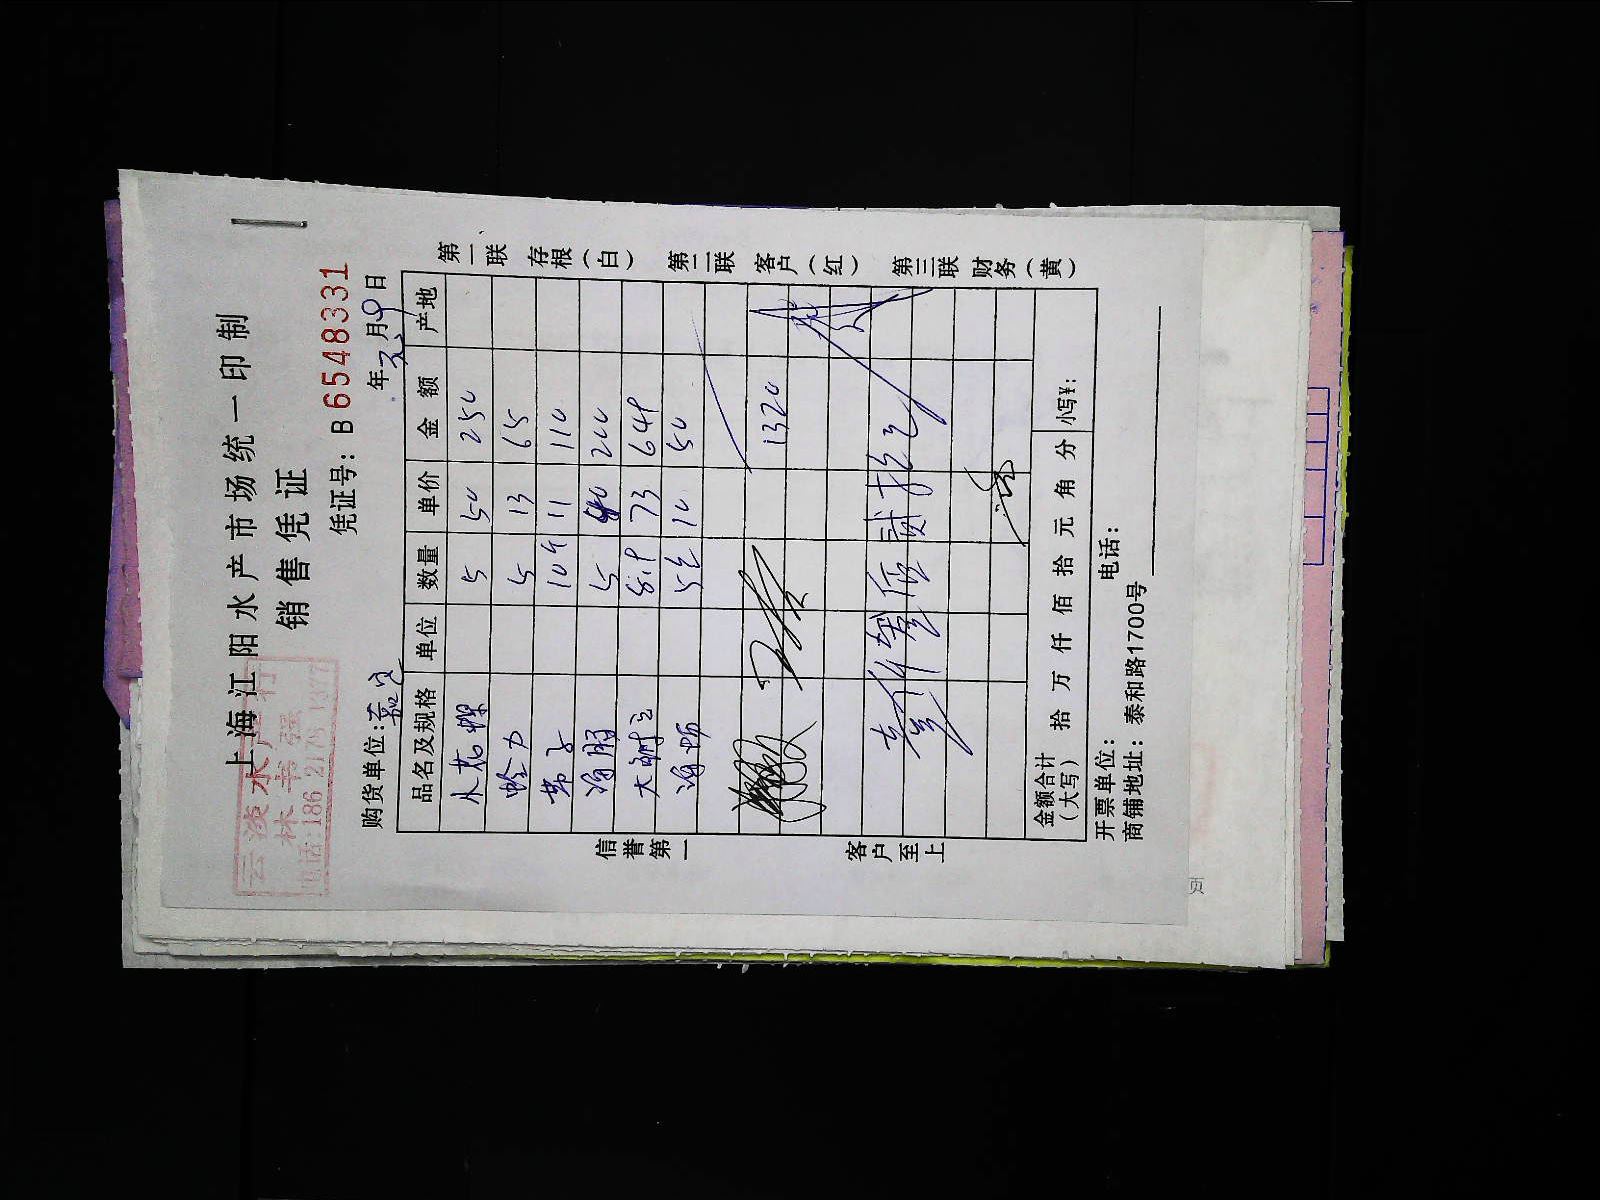 上海江阳水产市场统一印制
销售凭证
云淡水产行
林书强
电话:186 2175 1377
凭证号: B 6548331
购货单位:嘉定 年 月 9 日
品名及规格 单位 数量 单价 金额 产地
5 50 250
蛤 5 13 65
带子 10个 11 110
5 40 200
大 8.9 73 649
5 10 50
1320
壹仟叁佰贰拾元
金额合计(大写) 拾 万 仟 佰 拾 元 角 分 小写¥:
开票单位: 电话:
商铺地址: 泰和路1700号
信誉第一
客户至上
第一联 存根(白) 第二联 客户(红) 第三联 财务(黄)
页